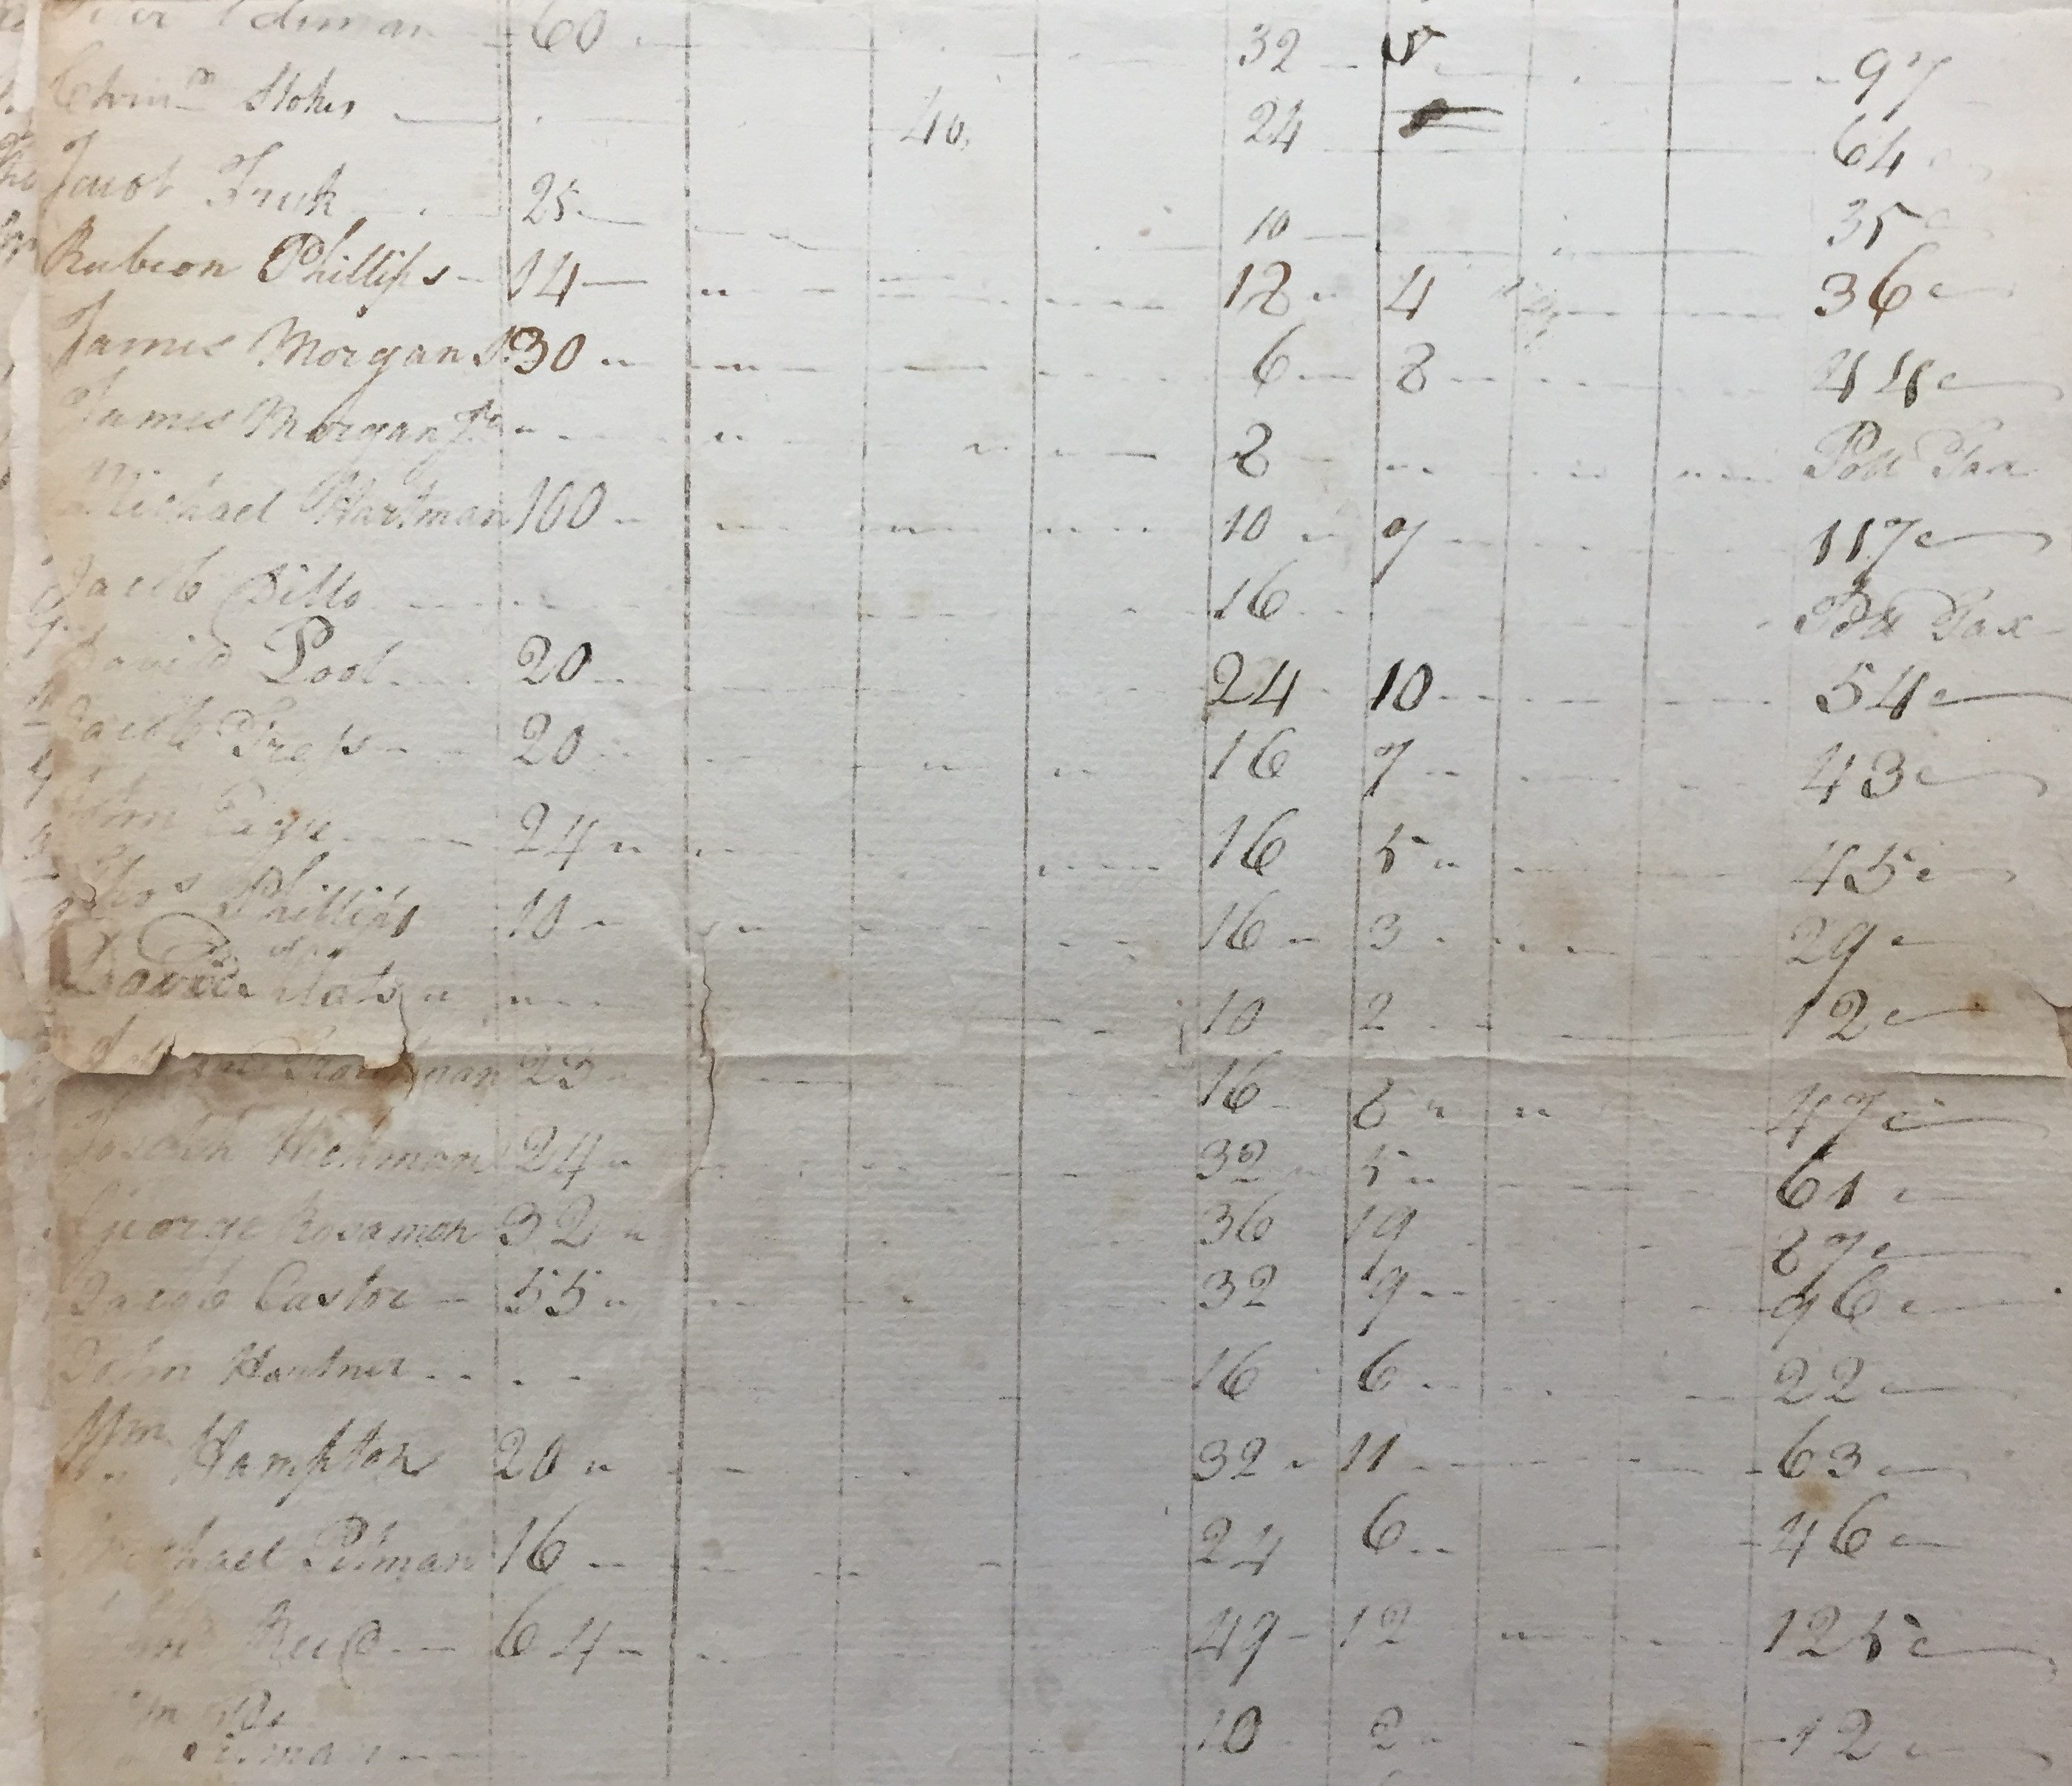 60 32 5 97
Stokes 40 24 64
Jacob 25 10 35
Rubeon Phillips 14 18 4 36
James Morgan Sr 30 6 8 44
James Morgan Jr 8 Poll Tax
Michael Hartman 100 10 7 117
Jacob Ditto 16 Poll Tax
David Pool 20 24 10 54
Jacob 20 16 7 43
John Eagle 24 16 5 45
Thos Phillips 10 16 3 29
David 10 2 12
23 16 8 47
Joseph Hickman 24 32 5 61
George Rosamon 32 36 19 87
Jacob Castor 55 32 9 96
John Hartner 16 6 22
Wm Hampton 20 32 11 63
Michael Pitman 16 24 6 46
Reed 64 49 12 125
10 2 12